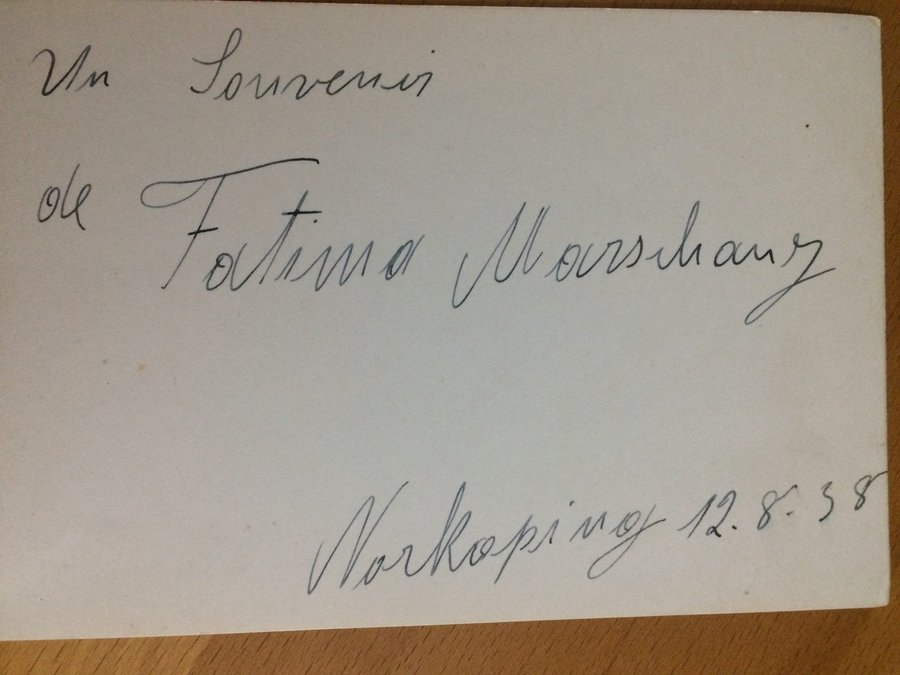 Un Souvenir
de Fatima Marschany
Norkoping 12.8.38